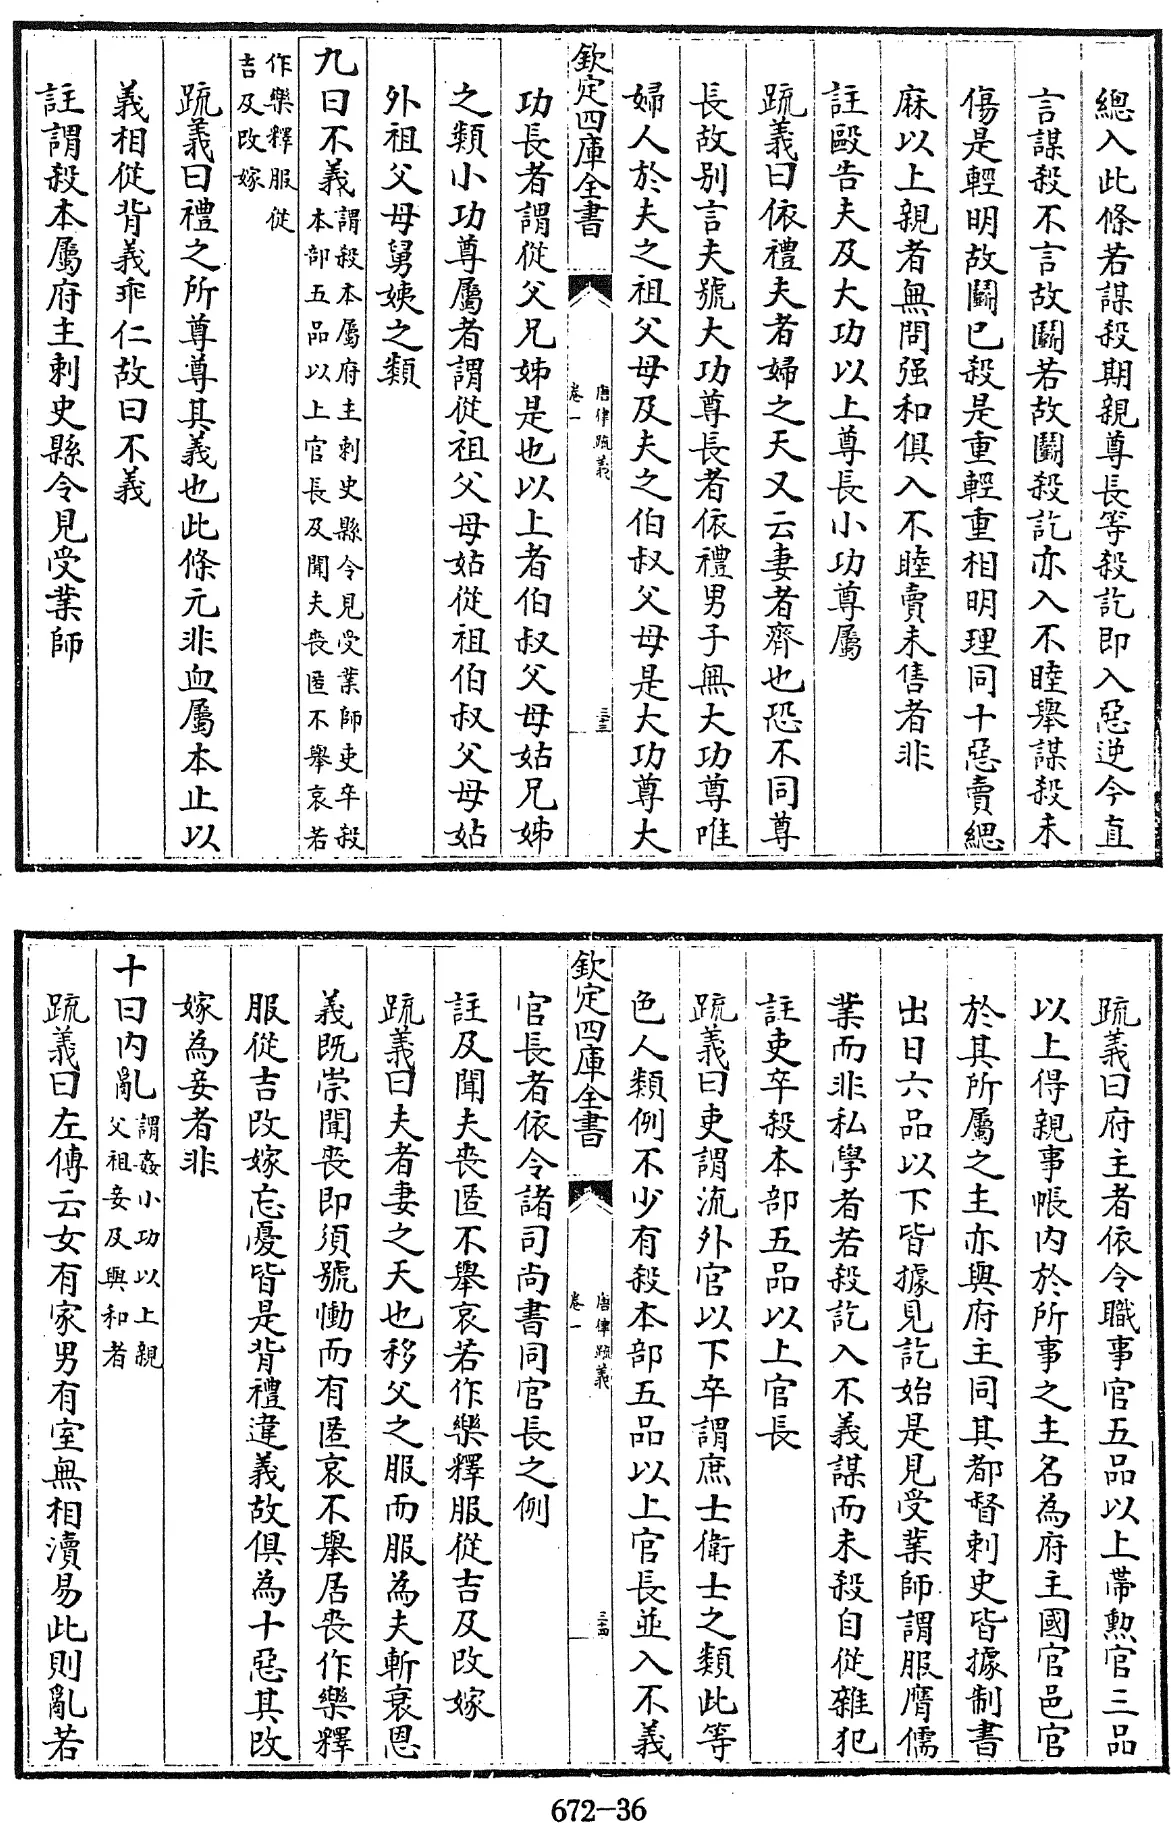 總入此條若謀殺期親尊長等殺訖即入惡逆今直
言謀殺不言故鬭若故鬭殺訖亦入不睦舉謀殺未
傷是輕明故鬭已殺是重輕重相明理同十惡賣緦
麻以上親者無問强和俱入不睦賣未售者非
註毆告夫及大功以上尊長小功尊屬
疏義曰依禮夫者婦之天又云妻者齊也恐不同尊
長故别言夫號大功尊長者依禮男子無大功尊唯
婦人於夫之祖父母及夫之伯叔父母是大功尊大
欽定四庫全書
唐律疏義
卷一
三三
功長者謂從父兄姊是也以上者伯叔父母姑兄姊
之類小功尊屬者謂從祖父母姑從祖伯叔父母姑
外祖父母舅姨之類
九曰不義謂殺本屬府主刺史縣令見受業師吏卒殺
本部五品以上官長及聞夫喪匿不舉哀若
作樂釋服從
吉及改嫁
疏義曰禮之所尊尊其義也此條元非血屬本止以
義相從背義乖仁故曰不義
註謂殺本屬府主刺史縣令見受業師
疏義曰府主者依令職事官五品以上帶勲官三品
以上得親事帳内於所事之主名為府主國官邑官
於其所屬之主亦與府主同其都督刺史皆據制書
出日六品以下皆據見訖始是見受業師謂服膺儒
業而非私學者若殺訖入不義謀而未殺自從雜犯
註吏卒殺本部五品以上官長
疏義曰吏謂流外官以下卒謂庶士衛士之類此等
色人類例不少有殺本部五品以上官長並入不義
欽定四庫全書
唐律疏義
卷一
三四
官長者依令諸司尚書同官長之例
註及聞夫喪匿不舉哀若作樂釋服從吉及改嫁
疏義曰夫者妻之天也移父之服而服為夫斬衰恩
義既崇聞喪即須號慟而有匿哀不舉居喪作樂釋
服從吉改嫁忘憂皆是背禮違義故俱為十惡其改
嫁為妾者非
十曰内亂謂姦小功以上親
父祖妾及與和者
疏義曰左傳云女有家男有室無相瀆易此則亂若
672-36